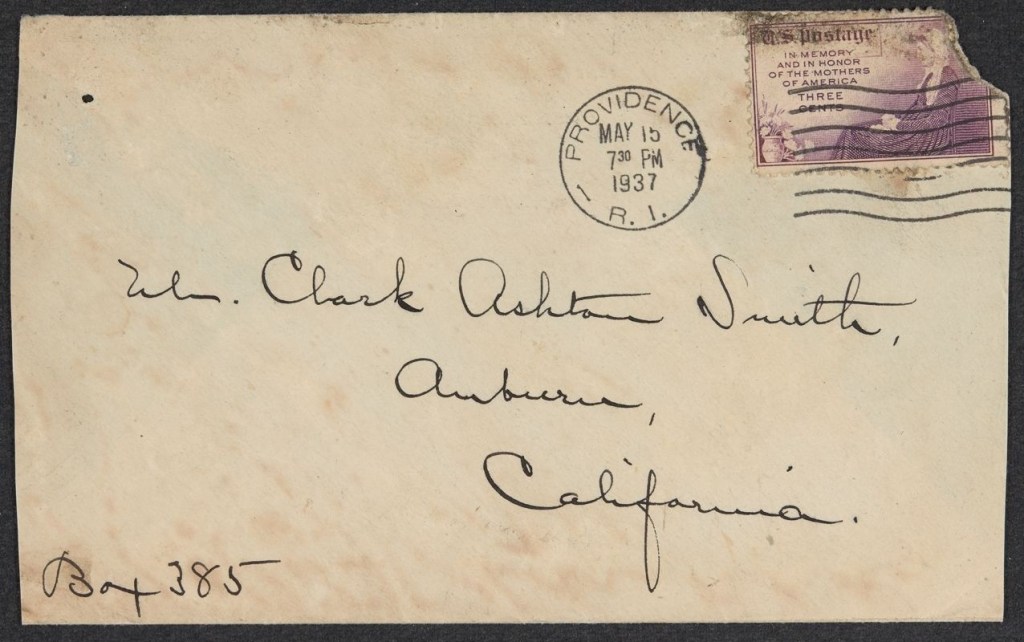 U.S. Postage
IN MEMORY
AND IN HONOR
OF THE MOTHERS
OF AMERICA
THREE
CENTS
PROVIDENCE
MAY 15
7 30 PM
1937
1
R. I.
Mr. Clark Ashton Smith,
Auburn,
California.
Box 385